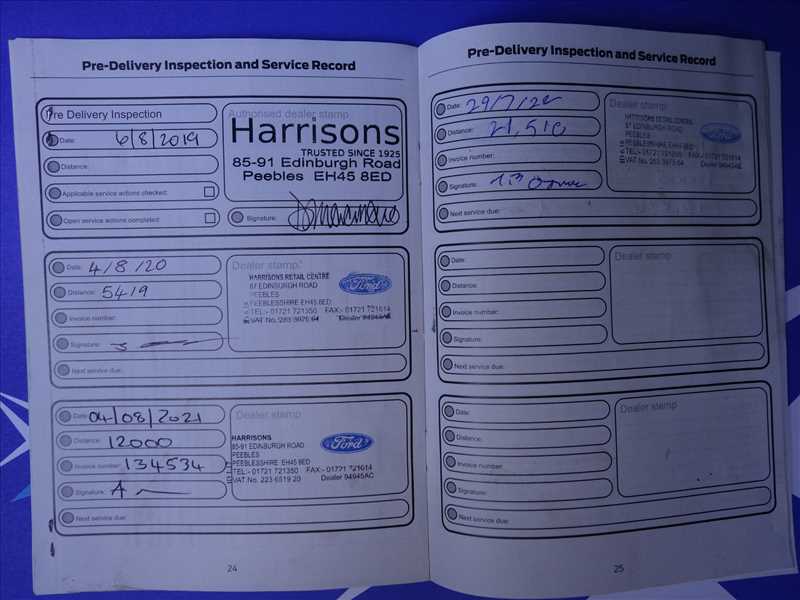 Pre-Delivery Inspection and Service Record
Pre Delivery Inspection
Date: 6/8/2019
Distance:
Applicable service actions checked:
Open service actions completed:
Authorised dealer stamp
Harrisons
TRUSTED SINCE 1925
85-91 Edinburgh Road
Peebles EH45 8ED
Signature:
Date: 4/8/20
Distance: 5419
Invoice number:
Signature:
Next service due:
Dealer stamp
HARRISONS RETAIL CENTRE
EDINBURGH ROAD
PEEBLES
PEEBLESSHIRE EH45 8ED
TEL:- 01721 721350 FAX:- 01721 721614
VAT No. Dealer
Ford
Date: 04/08/2021
Distance: 12000
Invoice number: 134534
Signature:
Next service due:
Dealer stamp
HARRISONS
85-91 EDINBURGH ROAD
PEEBLES
PEEBLESSHIRE EH45 8ED
TEL:- 01721 721350 FAX:- 01721 721614
VAT No. 223 6519 20 Dealer 94945AC
Ford
24
Pre-Delivery Inspection and Service Record
Date: 29/7/22
Distance: 21,510
Invoice number:
Signature:
Next service due:
Dealer stamp
HARRISONS RETAIL CENTRE
EDINBURGH ROAD
PEEBLES
PEEBLESSHIRE
Ford
Date:
Distance:
Invoice number:
Signature:
Next service due:
Dealer stamp
Date:
Distance:
Invoice number:
Signature:
Next service due:
Dealer stamp
25